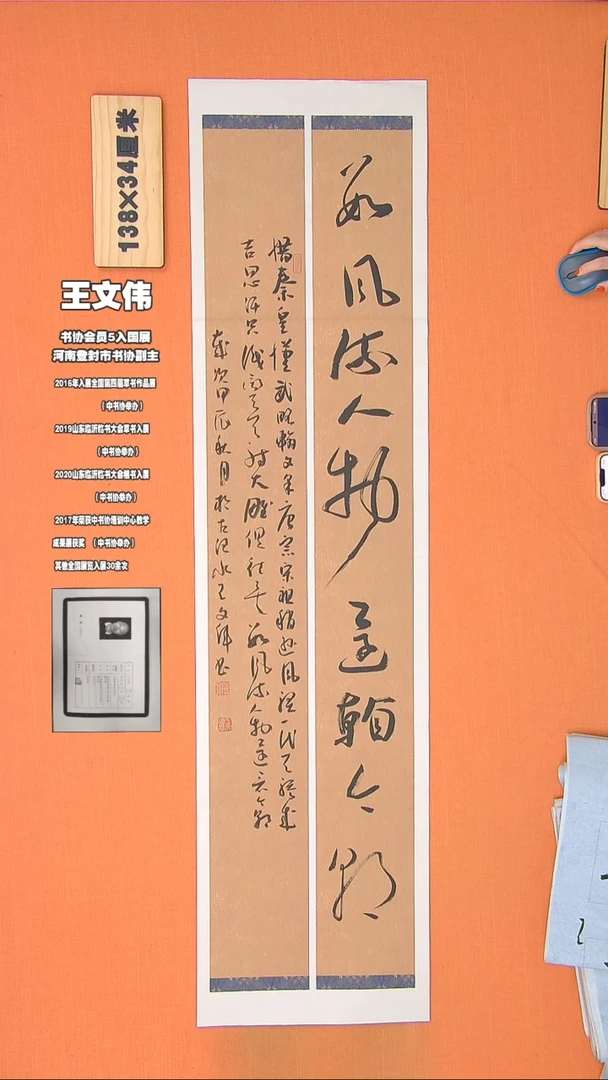 138X34厘米
王文伟
书协会员5入国展
河南登封市书协副主
2016年入展全国第四届草书作品展
（中书协举办）
2019山东临沂临书大会草书入展
（中书协举办）
2020山东临沂临书大会楷书入展
（中书协举办）
2017年荣获中书协培训中心教学
成果展获奖 （中书协举办）
其他全国展览入展30余次
数风流人物还看今朝
惜秦皇汉武略输文采唐宗宋祖稍逊风骚一代天骄成
吉思汗只识弯弓射大雕俱往矣数风流人物还看今朝
岁次甲辰秋月於古汜水王文伟书